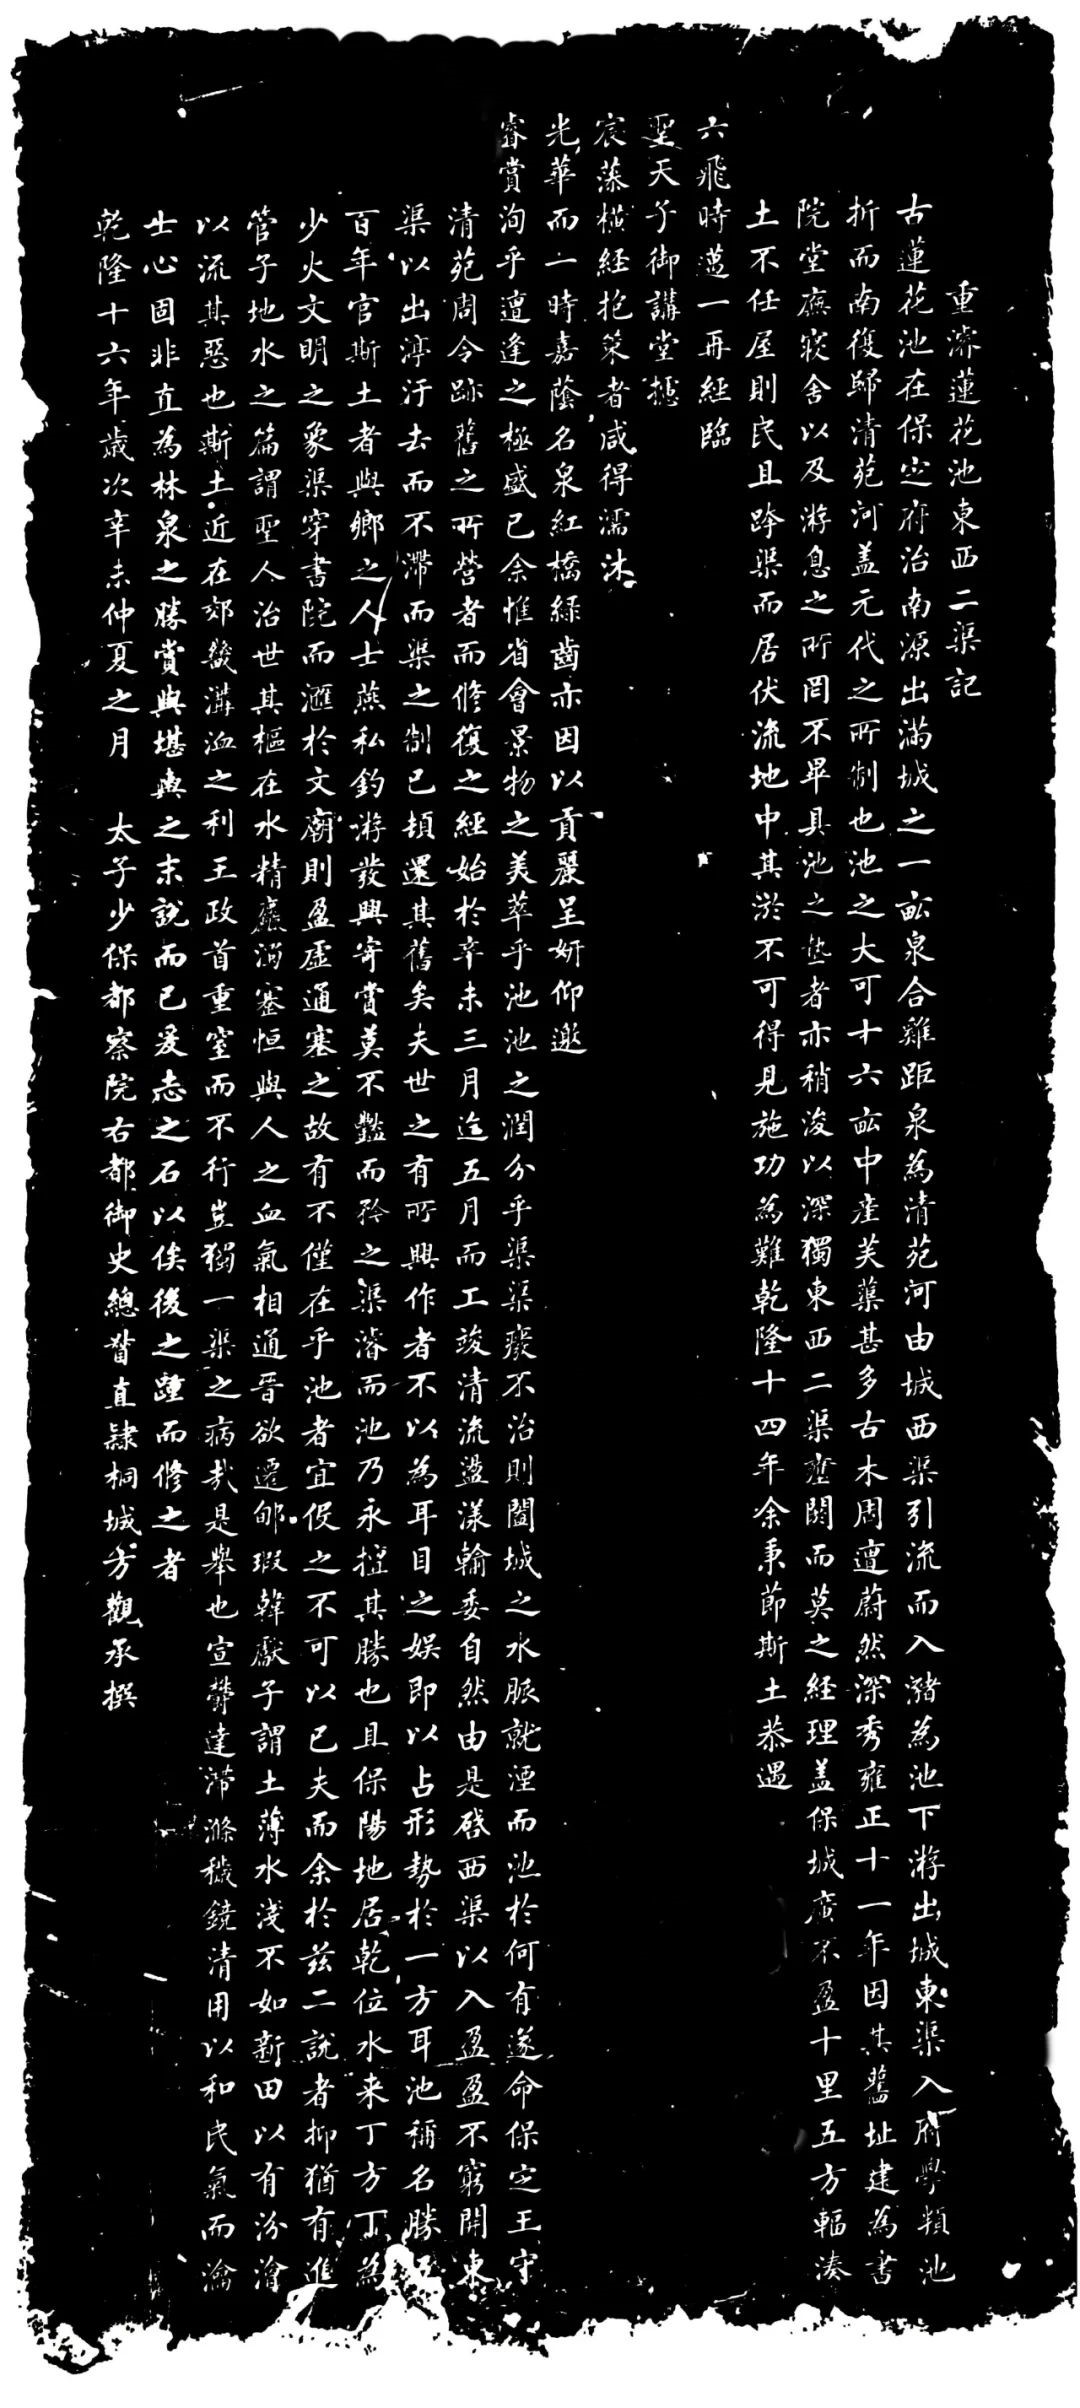 重濬蓮花池東西二渠記
古蓮花池在保定府治南源出滿城之一畝泉合雞距泉為清苑河由城西渠引流而入瀦為池下游出城東渠入府學頖池
折而南復歸清苑河盖元代之所制也池之大可十六畝中產芙蕖甚多古木周遭蔚然深秀雍正十一年因其舊址建為書
院堂廡寢舍以及游息之所罔不畢具池之墊者亦稍浚以深獨東西二渠壅閼而莫之經理盖保城廣不盈十里五方輻湊
土不任屋則民且跨渠而居伏流地中其淤不可得見施功為難乾隆十四年余秉節斯土恭遇
六飛時邁一再經臨
聖天子御講堂攄
宸藻橫經抱策者咸得濡沐
光華而一時嘉蔭名泉紅橋綠齒亦因以貢麗呈妍仰邀
睿賞洵乎遭逢之極盛已余惟省會景物之美萃乎池池之潤分乎渠渠癈不治則闔城之水脈就湮而池於何有遂命保定王守
清苑周令跡舊之所營者而修復之經始於辛未三月迄五月而工竣清流盪漾輸委自然由是啓西渠以入盈盈不窮開東
渠以出渟汙去而不滯而渠之制已頓還其舊矣夫世之有所興作者不以為耳目之娱即以占形勢於一方耳池稱名勝
百年官斯土者與鄉之人士燕私釣游發興寄賞莫不豔而矜之渠濬而池乃永擅其勝也且保陽地居乾位水来丁方丁為
少火文明之象渠穿書院而滙於文廟則盈虛通塞之故有不僅在乎池者宜復之不可以已夫而余於兹二說者抑猶有進
管子地水之篇謂聖人治世其樞在水精麤淌蹇恒與人之血氣相通晋欲遷郇瑕韓獻子謂土薄水淺不如新田以有汾澮
以流其惡也斯土近在郊畿溝洫之利王政首重窒而不行豈獨一渠之病㢤是舉也宣鬱達滯滌穢鏡清用以和民氣而瀹
士心固非直為林泉之勝賞與堪輿之末說而已爰志之石以俟後之踵而修之者
乾隆十六年歲次辛未仲夏之月　太子少保都察院右都御史總督直隸桐城方觀承撰